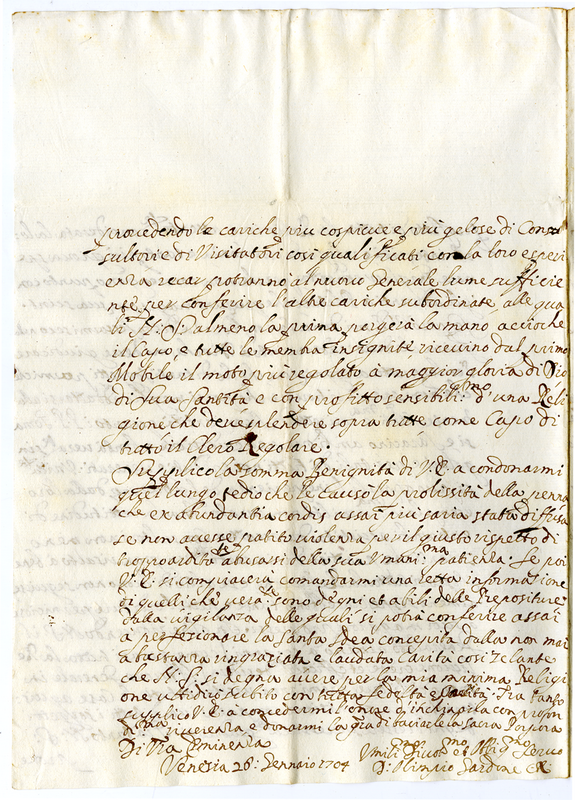 provedendo le cariche più cospicue e più gelose di Con=
sultori e di Visitatori così qualificati con la loro esperi
enza recar potranno al nuovo Generale lume sufficie
nte per conferire l'altre cariche subordinate, alle qua
li N: S: almeno la prima porgerà la mano, accioche
il Capo, e tutte le membra insignite ricevino dal primo
Mobile il moto più regolato à maggior gloria di Dio
di Sua Santità e con profitto sensibiliss:mo d'una Reli
gione che deve splendere sopra tutte come Capo di
tutto il Clero Regolare.
Supplico la somma Benignità di V.E. a condonarmi
quel lungo tedio che le causò la prolissità della penna
che ex abundantia cordis assai più saria stata diffusa
se non avesse patito violenza per il giusto rispetto di
troppo arditam:te abusarsi della sua Umaniss:ma patienza. Se poi
V.E. si compiacerà comandarmi una retta informatione
di quelli che veram:te sono degni et abili delle Prepositure
dalla vigilanza delle quali si potrà conferire assai
à perfesionare la Santa Idea concepita dalla non mai
à bastanza ringraziata e laudata Carità così zelante
che N: S: si degna avere per la mia minima Religi
one ubbidirò subito con tutta fedeltà e Tra tanto
supplico V.E. à concedermi l'onore d'inchinarla con profon
diss:ma riverenza e donarmi la gra di baciarle la Sacra Porpora
Di V:ra Eminenza
Venezia 26: Gennaio 1704
Umiliss:mo Divotiss:mo et Obligat:mo Servo
D: Olimpio